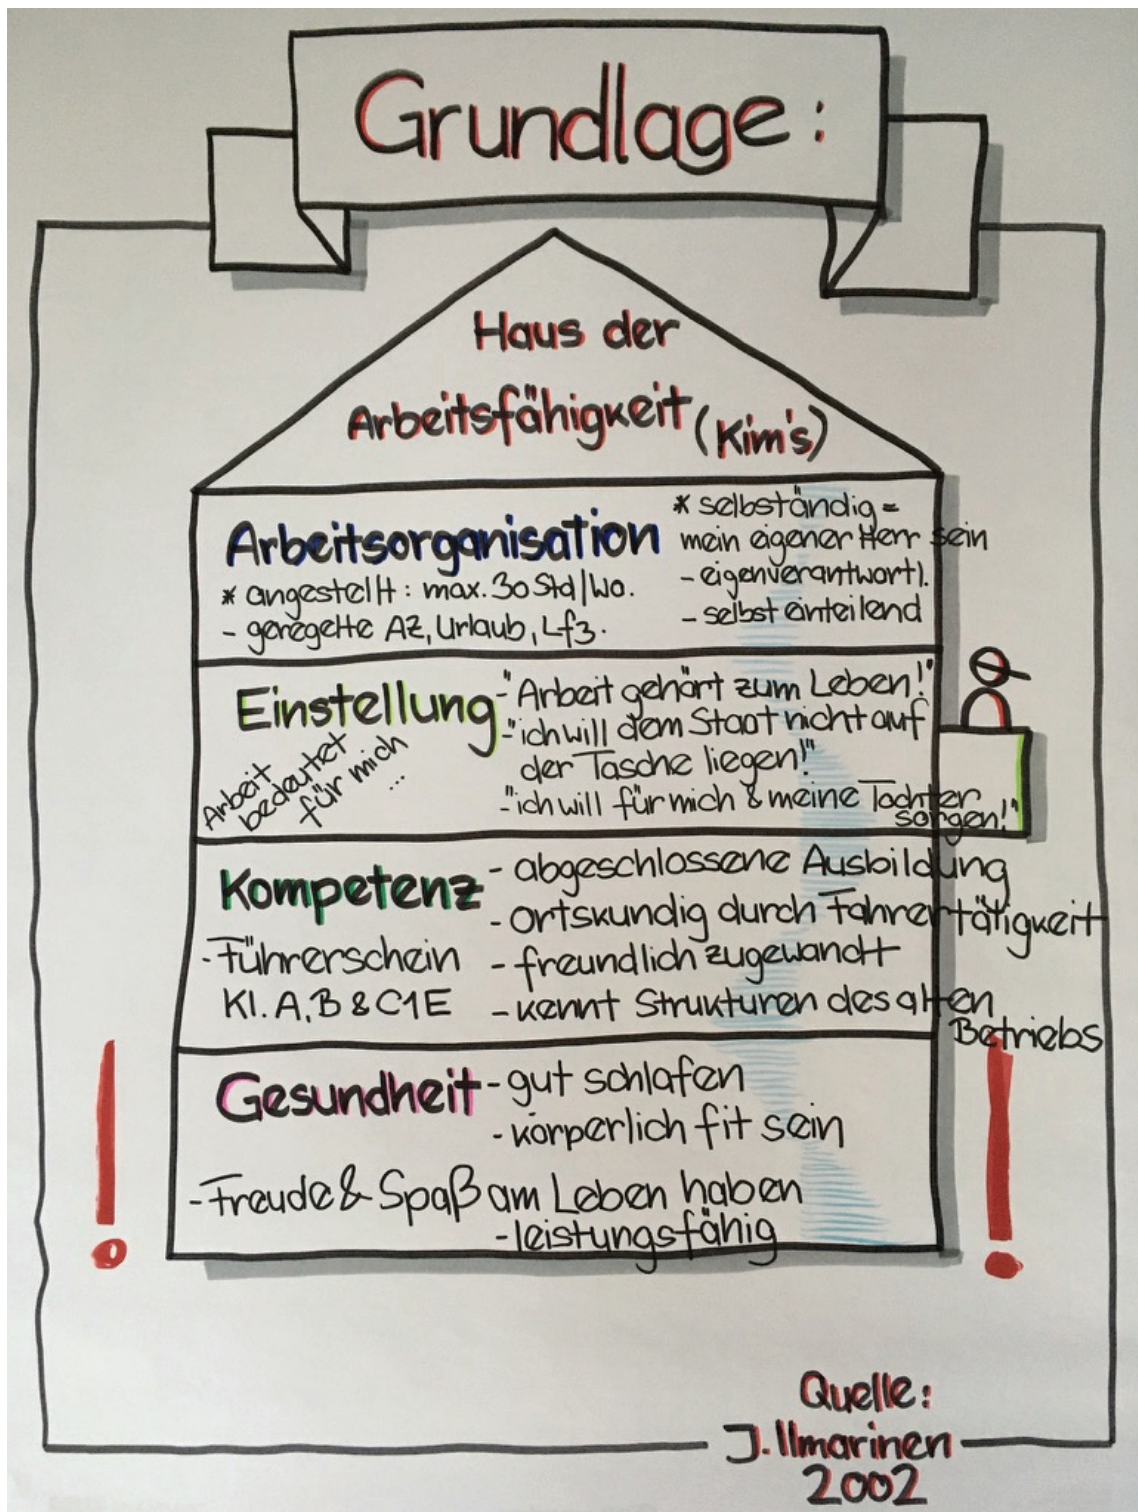 Grundlage:
Haus der
Arbeitsfähigkeit (Kim's)
Arbeitsorganisation
* angestellt: max. 30 Std/Wo.
- geregelte AZ, Urlaub, Lfz.
* selbständig =
mein eigener Herr sein
- eigenverantwortl.
- selbst einteilend
Einstellung
Arbeit
bedeutet
für mich
...
- "Arbeit gehört zum Leben!"
- "ich will dem Staat nicht auf
der Tasche liegen!"
- "ich will für mich & meine Tochter
sorgen!"
Kompetenz
- Führerschein
Kl. A, B & C1E
- abgeschlossene Ausbildung
- ortskundig durch Fahrertätigkeit
- freundlich zugewandt
- kennt Strukturen des alten
Betriebs
Gesundheit
- gut schlafen
- körperlich fit sein
- Freude & Spaß am Leben haben
- leistungsfähig
Quelle:
J. Ilmarinen
2002